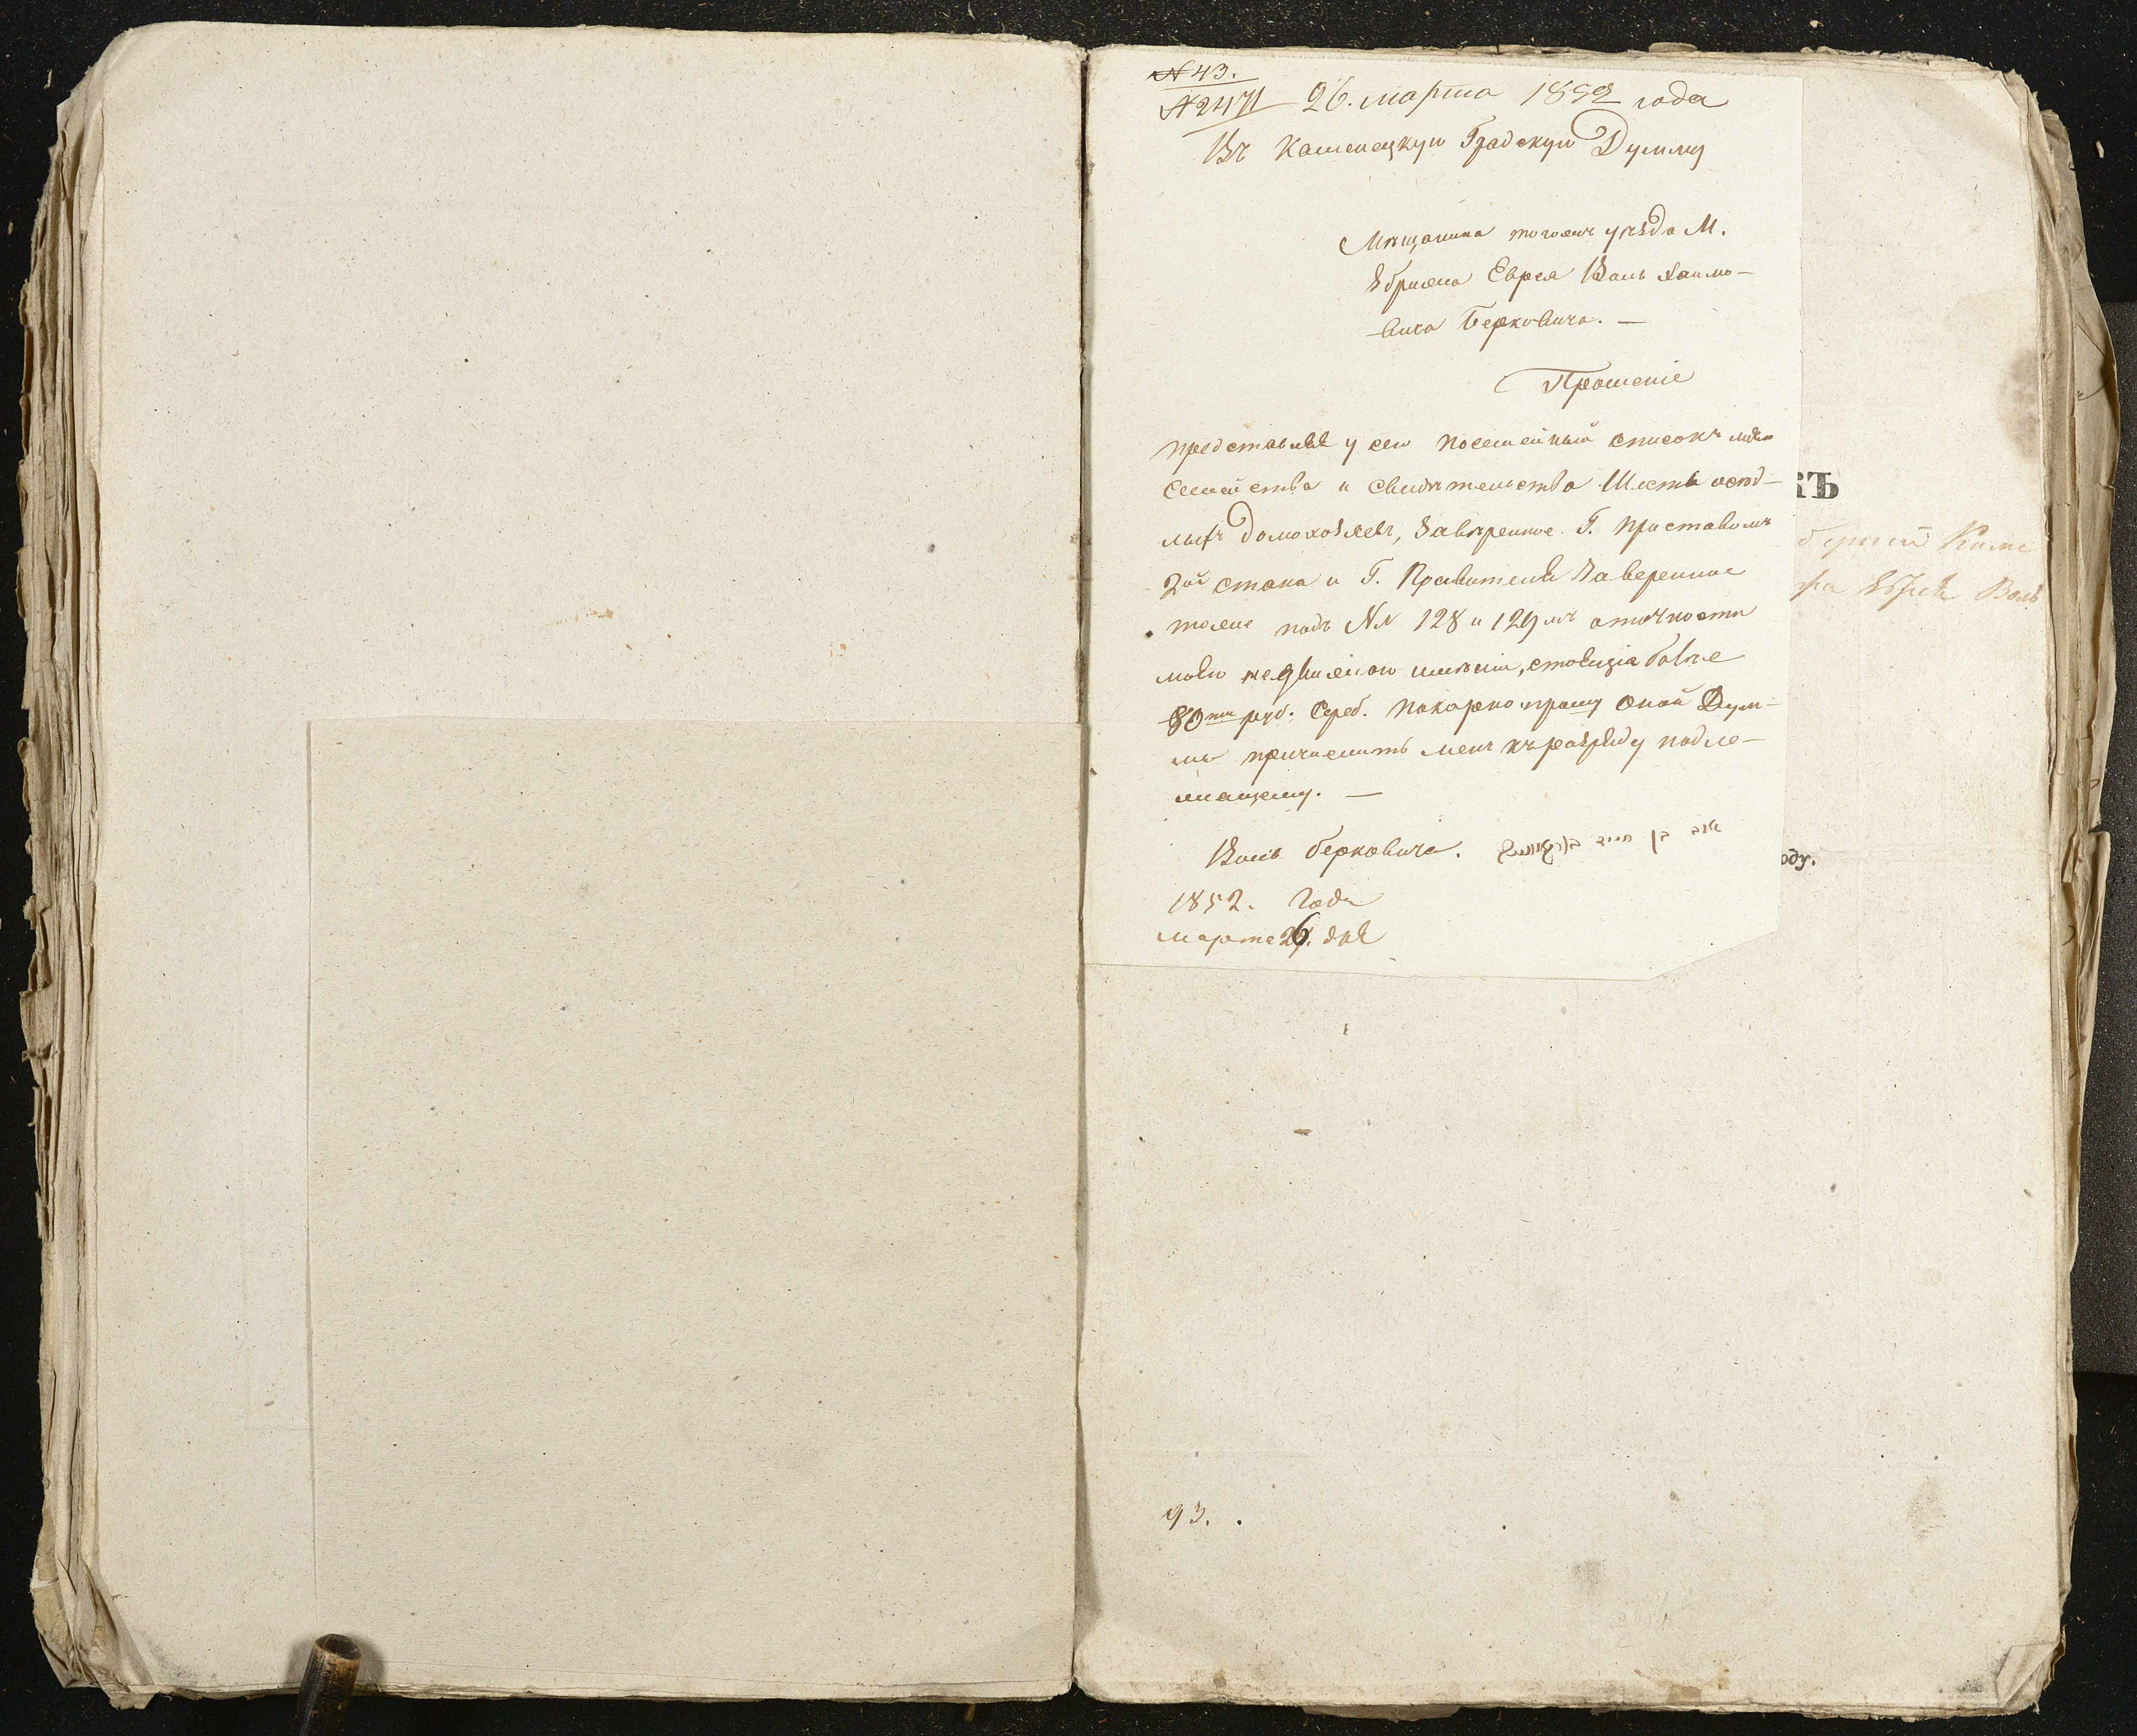 № 43.
№ 2471 26. марта 1852 года
Въ Каменецкую Градскую Думму
Мѣщанина тогожъ уѣзда М.
Збрижа Еврея Воль Хаимо-
вича Берковича. —
Прошеніе
представляя у сего посемейный списокъ моего
Семейства и свидѣтельство Шесть осѣд-
лыхъ домохозяевъ, Завѣренное Г. Приставомъ
2ой стана и Г. Завереннное
тоже подъ № 128 и 129
недвижимою имѣнія, стоющія болѣе
80ти руб. Сереб. покорно прошу оной Дум-
мы причислить меня къ разряду подле-
жащему. —
Воль Берковичъ.
1852. Года
марта 26. дня
КЪ
Воль
оду.
93.